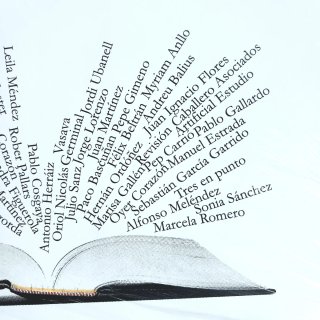 Leila Méndez
Pablo Cosgaya
Antonio Herráiz
Vasava
Oriol Nicolás Germinal Jordi Ubanell
Julio Sanz Jorge Lorenzo
Juan Martínez
Paco Bascuñán Pepe Gimeno
Félix Beltrán Myriam Anllo
Hernán Ordóñez Andreu Balius
Juan Ignacio Flores
Marisa Gallén Revisión Caballero Asociados
Artificial Estudio
Pep Carrió Pablo Gallardo
Oyer Corazón Manuel Estrada
Sebastián García Garrido
Tres en punto
Alfonso Meléndez
Sonia Sánchez
Marcela Romero